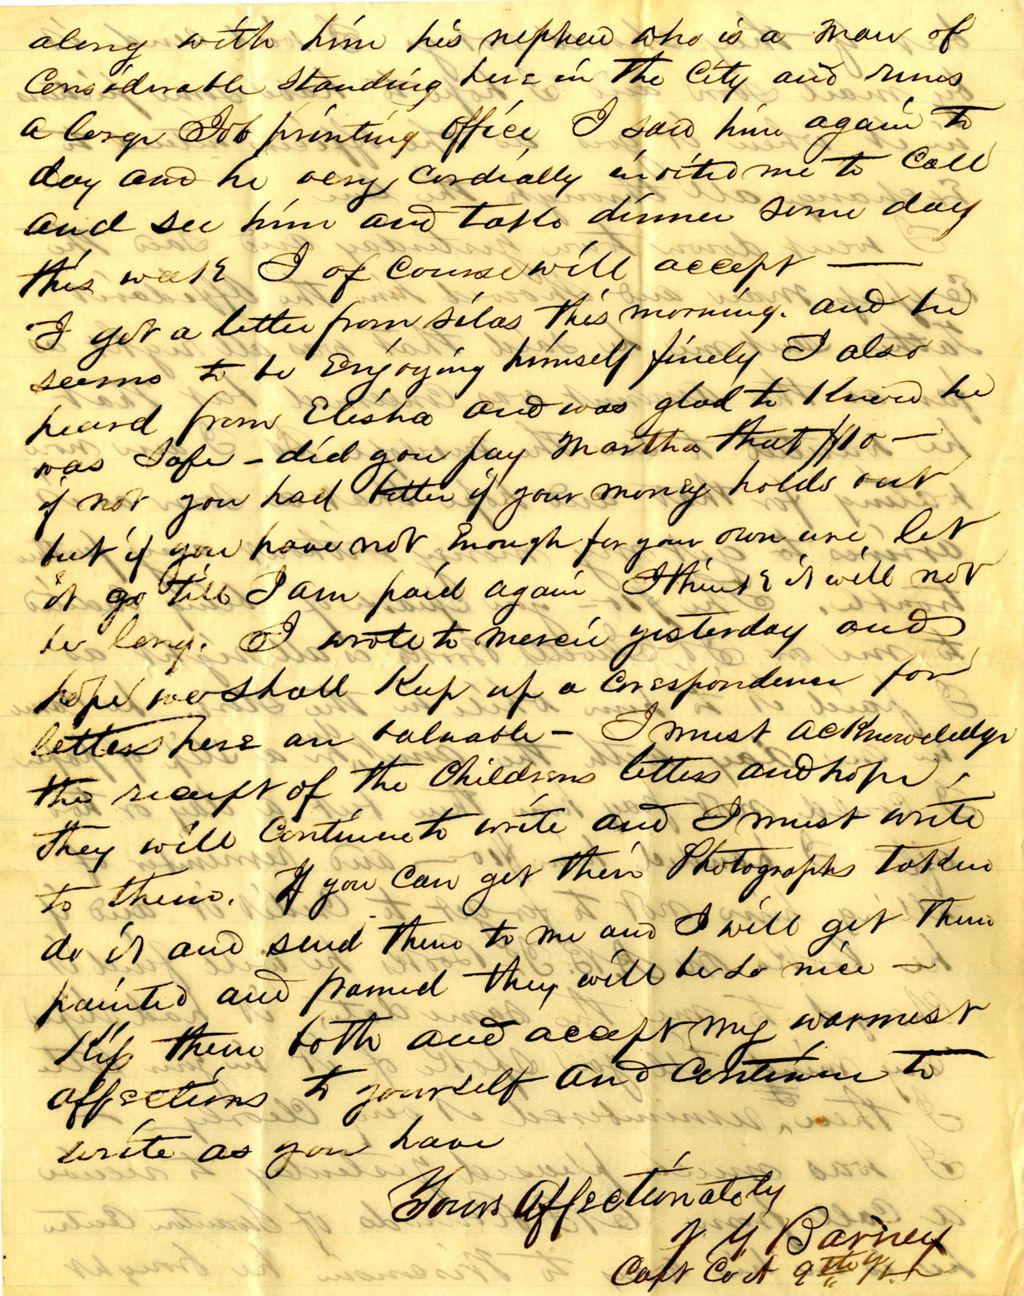 along with him his nephew who is a man of
Considerable Standing here in the City and runs
a large Job printing office I saw him again to
day and he very Cordially invited me to Call
and see him and take dinner some day
this week I of Course will accept —
I got a letter from Silas this morning. and he
seems to be Enjoying himself finely I also
heard from Elisha and was glad to Know he
was Safe – did you pay Martha that $10 –
if not you had better if your money holds out
but if you have not Enough for your own use let
it go till I am paid again I think it will not
be long. I wrote to mercie yesterday and
hope we shall Keep up a Corespondence for
letters here are valuable – I must acknowledge
the receipt of the Childrens letters and hope
they will Continue to write and I must write
to them. If you Can get their Photographs taken
do it and send them to me and I will get them
painted and framed they will be so nice –
Kiss them both and accept my warmest
affections to yourself and Continue to
write as you have
Yours Affectionately
V G Barney
Capt Co A 9th Vt